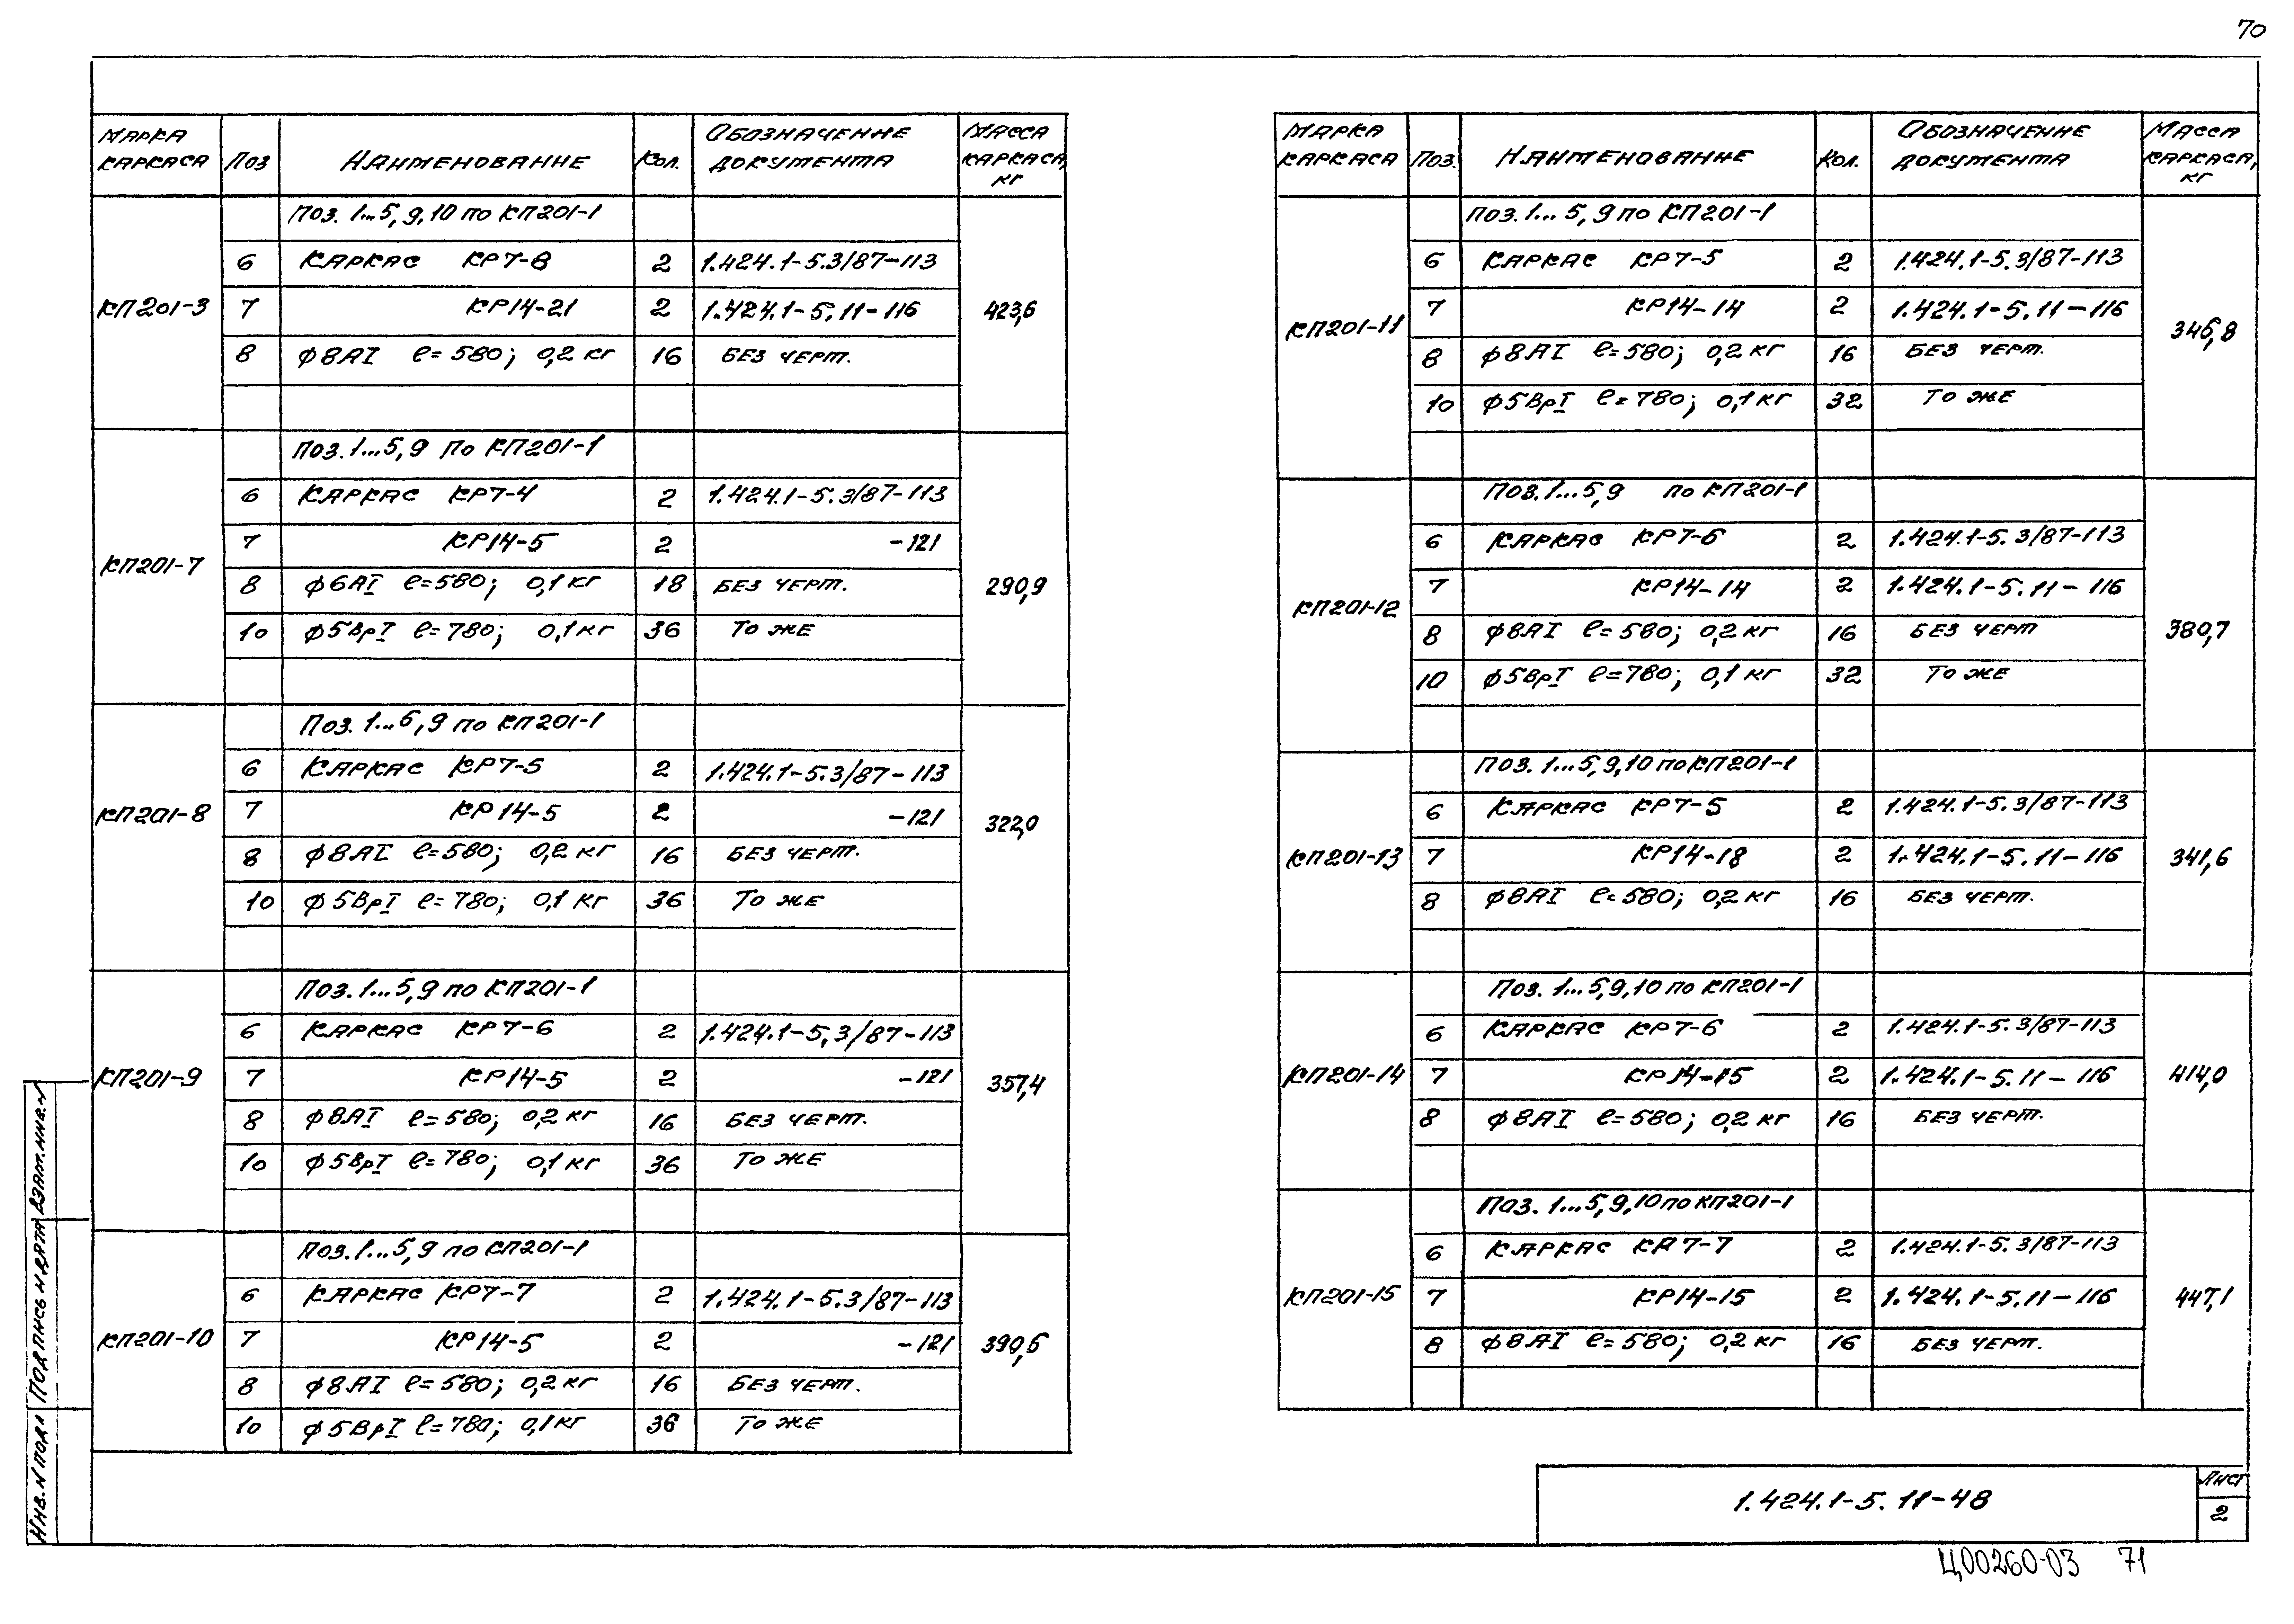 70
МАРКА КАРКАСА ПОЗ НАИМЕНОВАНИЕ КОЛ. ОБОЗНАЧЕНИЕ ДОКУМЕНТА МАССА КАРКАСА, КГ
ПОЗ. 1...5, 9, 10 по КП201-1
КП201-3 423,6
6 КАРКАС КР7-8 2 1.424.1-5.3/87-113
7 КР14-21 2 1.424.1-5.11-116
8 ϕ8АI ℓ=580; 0,2 кг 16 БЕЗ ЧЕРТ.
ПОЗ. 1...5, 9 по КП201-1
КП201-7 290,9
6 КАРКАС КР7-4 2 1.424.1-5.3/87-113
7 КР14-5 2 -121
8 ϕ6АI ℓ=580; 0,1 кг 18 БЕЗ ЧЕРТ.
10 ϕ5ВрI ℓ=780; 0,1 кг 36 ТО ЖЕ
ПОЗ. 1...5, 9 по КП201-1
КП201-8 322,0
6 КАРКАС КР7-5 2 1.424.1-5.3/87-113
7 КР14-5 2 -121
8 ϕ8АI ℓ=580; 0,2 кг 16 БЕЗ ЧЕРТ.
10 ϕ5ВрI ℓ=780; 0,1 кг 36 ТО ЖЕ
ПОЗ. 1...5, 9 по КП201-1
КП201-9 357,4
6 КАРКАС КР7-6 2 1.424.1-5,3/87-113
7 КР14-5 2 -121
8 ϕ8АI ℓ=580; 0,2 кг 16 БЕЗ ЧЕРТ.
10 ϕ5ВрI ℓ=780; 0,1 кг 36 ТО ЖЕ
ПОЗ. 1...5, 9 по КП201-1
КП201-10 390,6
6 КАРКАС КР7-7 2 1.424.1-5.3/87-113
7 КР14-5 2 -121
8 ϕ8АI ℓ=580; 0,2 кг 16 БЕЗ ЧЕРТ.
10 ϕ5ВрI ℓ=780; 0,1 кг 36 ТО ЖЕ
МАРКА КАРКАСА ПОЗ. НАИМЕНОВАНИЕ КОЛ. ОБОЗНАЧЕНИЕ ДОКУМЕНТА МАССА КАРКАСА, КГ
ПОЗ. 1... 5, 9 по КП201-1
КП201-11 346,8
6 КАРКАС КР7-5 2 1.424.1-5.3/87-113
7 КР14-14 2 1.424.1-5.11-116
8 ϕ8АI ℓ=580; 0,2 кг 16 БЕЗ ЧЕРТ.
10 ϕ5ВрI ℓ=780; 0,1 кг 32 ТО ЖЕ
ПОЗ. 1...5, 9 по КП201-1
КП201-12 380,7
6 КАРКАС КР7-6 2 1.424.1-5.3/87-113
7 КР14-14 2 1.424.1-5.11-116
8 ϕ8АI ℓ=580; 0,2 кг 16 БЕЗ ЧЕРТ
10 ϕ5ВрI ℓ=780; 0,1 кг 32 ТО ЖЕ
ПОЗ. 1...5, 9, 10 по КП201-1
КП201-13 341,6
6 КАРКАС КР7-5 2 1.424.1-5.3/87-113
7 КР14-18 2 1.424.1-5.11-116
8 ϕ8АI ℓ=580; 0,2 кг 16 БЕЗ ЧЕРТ.
ПОЗ. 1...5, 9, 10 по КП201-1
КП201-14 414,0
6 КАРКАС КР7-6 2 1.424.1-5.3/87-113
7 КР14-15 2 1.424.1-5.11-116
8 ϕ8АI ℓ=580; 0,2 кг 16 БЕЗ ЧЕРТ.
ПОЗ. 1...5, 9, 10 по КП201-1
КП201-15 447,1
6 КАРКАС КР7-7 2 1.424.1-5.3/87-113
7 КР14-15 2 1.424.1-5.11-116
8 ϕ8АI ℓ=580; 0,2 кг 16 БЕЗ ЧЕРТ.
ИНВ. N ПОДЛ ПОДПИСЬ И ДАТА ВЗАМ. ИНВ. N
1.424.1-5.11-48
ЛИСТ
2
Ц00260-03 71